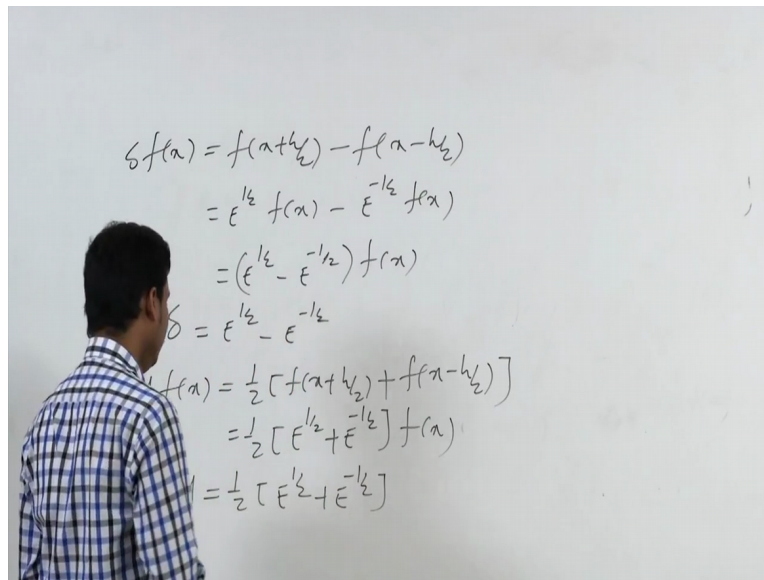 δf(x) = f(x+h/2) - f(x-h/2)
= E^{1/2} f(x) - E^{-1/2} f(x)
= (E^{1/2} - E^{-1/2}) f(x)
δ = E^{1/2} - E^{-1/2}
f(x) = 1/2 [f(x+h/2) + f(x-h/2)]
= 1/2 [E^{1/2} + E^{-1/2}] f(x)
= 1/2 [E^{1/2} + E^{-1/2}]